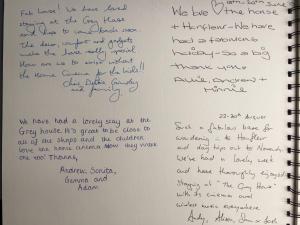 Fab house! We have loved
staying at the Grey House
and hope to come back soon.
The decor, comfort and gadgets
make the house really special
How are we to exist without
the Home Cinema for the kids!!
and family
We have had a lovely stay at the
Grey house. It's great to be close to
all of the shops and the children
love the home cinema. Now they want
one too! Thanks,
Andrew, Sorita,
Gemma and
Adam
We love the house
+ Honfleur - We have
had a fantastic
holiday - So a big
thank you
22-29th August
Such a fabulous base for
wandering in to Honfleur
and day trips out to Normandy.
We've had a lovely week
and have thoroughly enjoyed
staying at "The Grey House"
with its cinema and
wicker everywhere.
Andy, Alison,